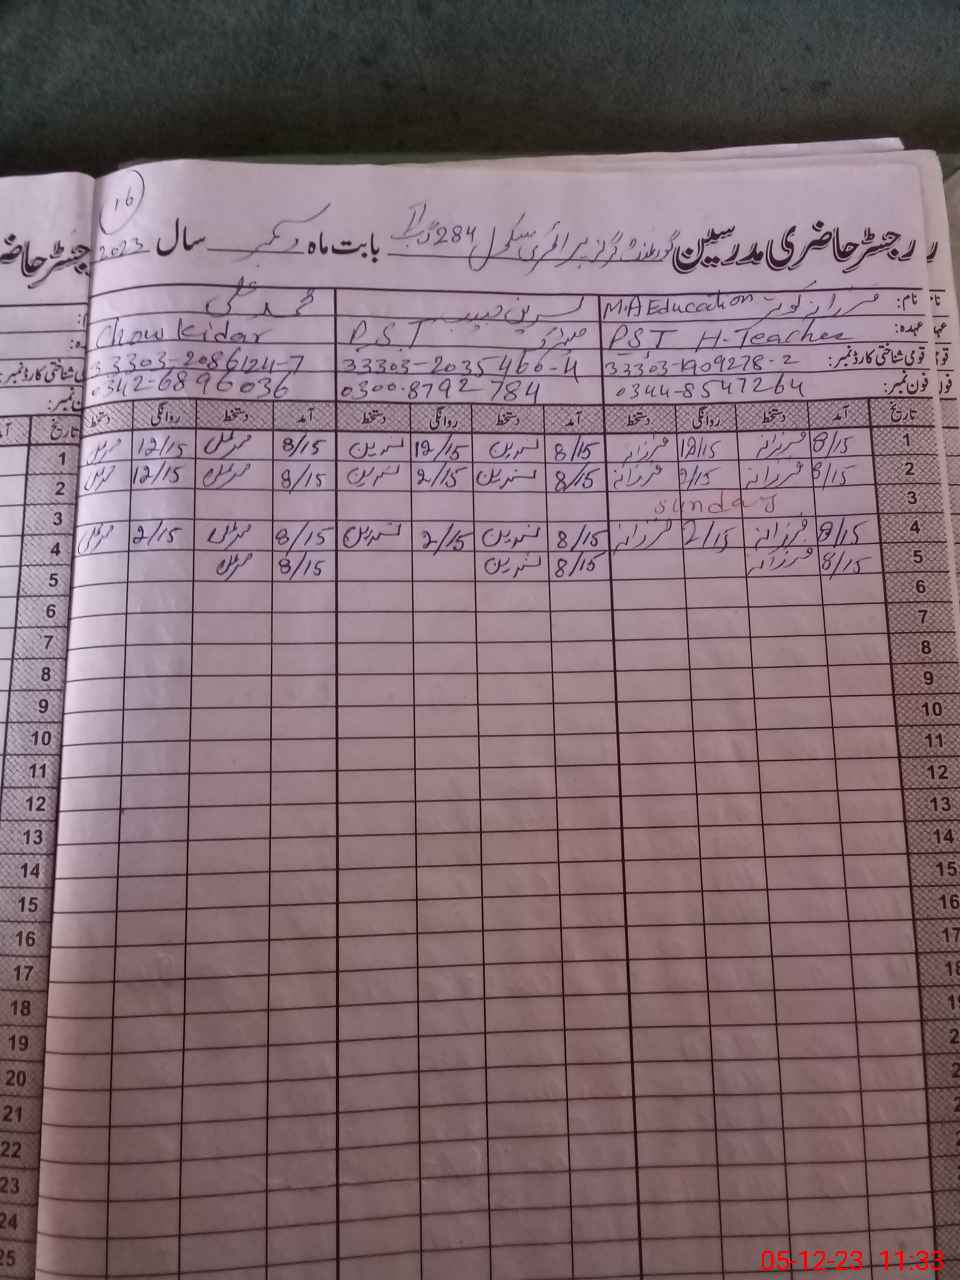 16
رجسٹر حاضری مدرسین گورنمنٹ گرلز پرائمری سکول 284 گ ب بابت ماہ دسمبر سال 2023
نام: فرزانہ کوثر M.A Education نسرین حبیب محمد علی
عہدہ: PST H-Teacher P.S.T Chowkidar
قومی شناختی کارڈ نمبر: 33303-1909278-2 33303-2035466-4 33303-2086124-7
فون نمبر: 0344-8547264 0300-8792784 0342-6896036
تاریخ آمد دستخط روانگی دستخط آمد دستخط روانگی دستخط آمد دستخط روانگی دستخط
1 8/15 فرزانہ 12/15 فرزانہ 8/15 نسرین 12/15 نسرین 8/15 محمد علی 12/15 محمد علی
2 8/15 فرزانہ 2/15 فرزانہ 8/15 نسرین 2/15 نسرین 8/15 محمد علی 12/15 محمد علی
3 Sunday
4 8/15 فرزانہ 2/15 فرزانہ 8/15 نسرین 2/15 نسرین 8/15 محمد علی 2/15 محمد علی
5 8/15 فرزانہ 8/15 نسرین 8/15 محمد علی
6
7
8
9
10
11
12
13
14
15
16
17
18
19
20
21
22
23
24
25
05-12-23 11:33